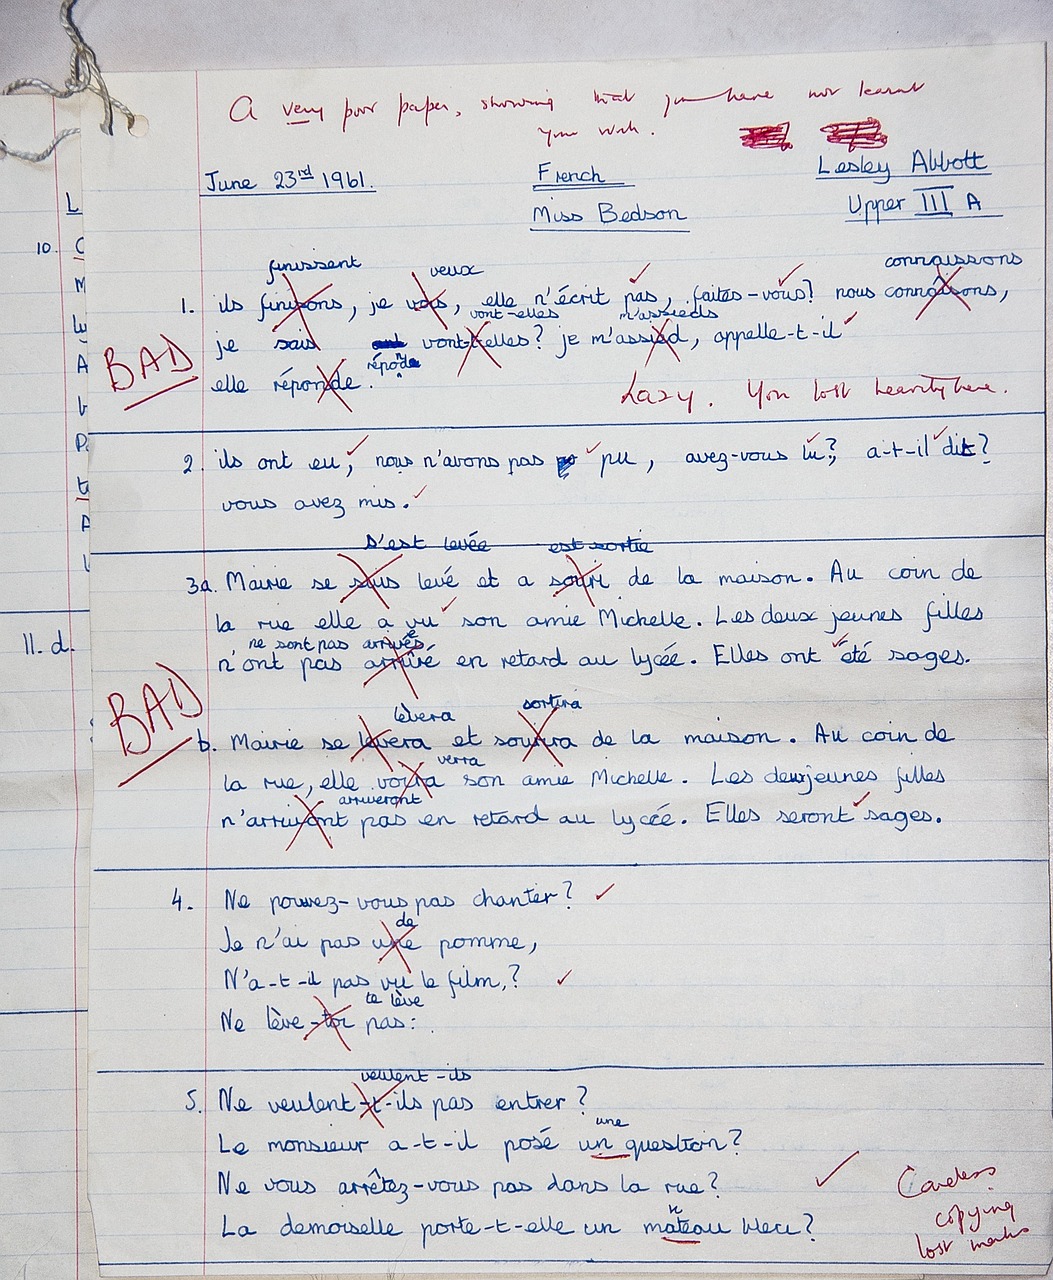 A very poor paper, showing that you have not learnt
your work.
June 23rd 1961.
French
Lesley Abbott
Miss Bedson
Upper III A
L
10. C
M
A
P
A
11. d.
finissent veux connaissons
1. ils finisons, je vois, elle n'écrit pas, faites-vous? nous connaisons,
vont-elles m'assieds
je sais vont-t-elles? je m'assied, appelle-t-il
BAD
elle réponde.
Lazy. You lost heavily here.
2. ils ont eu, nous n'avons pas pu, avez-vous lu?, a-t-il dit?
vous avez mis.
s'est levée est sortie
3a. Mairie se suis levé et a souri de la maison. Au coin de
la rue elle a vu son amie Michelle. Les deux jeunes filles
ne sont pas arrivées
n'ont pas arrivé en retard au lycée. Elles ont été sages.
BAD
lèvera sortira
b. Mairie se levera et sourira de la maison. Au coin de
verra
la rue, elle voira son amie Michelle. Les deux jeunes filles
arriveront
n'arrivont pas en retard au lycée. Elles seront sages.
4. Ne pouvez-vous pas chanter?
de
Je n'ai pas une pomme,
N'a-t-il pas vu le film,?
te lève
Ne lève-toi pas:
veulent-ils
5. Ne veulent-t-ils pas entrer?
une
Le monsieur a-t-il posé un question?
Ne vous arrêtez-vous pas dans la rue?
n
La demoiselle porte-t-elle un mateau bleu?
Careless
copying
lost marks